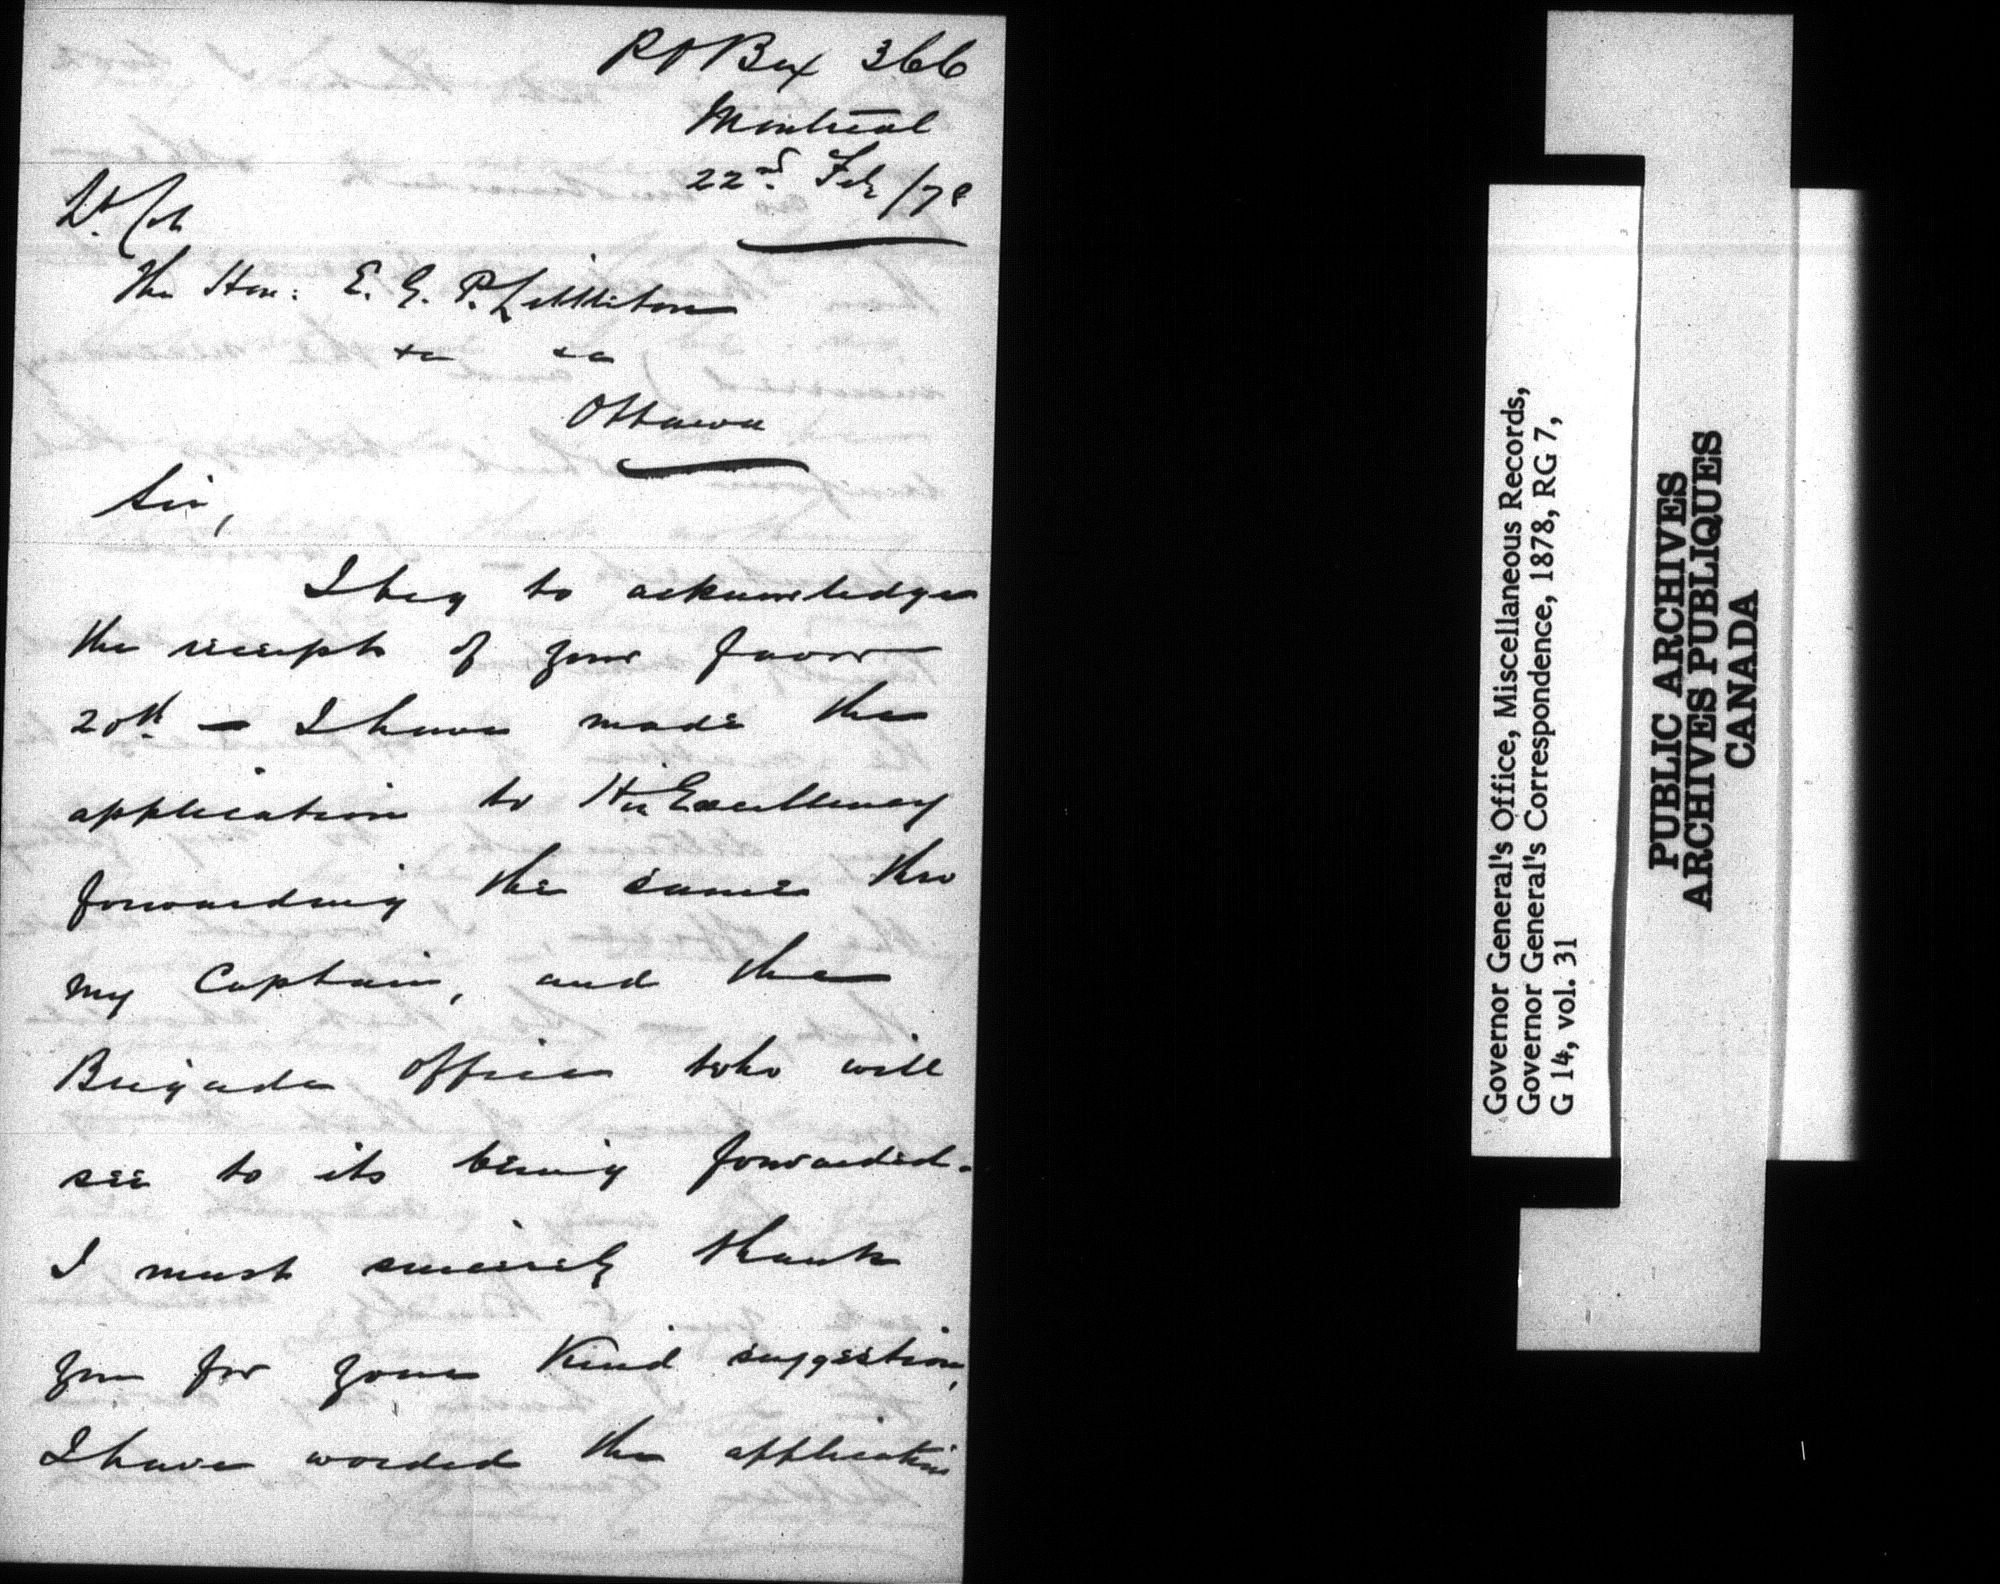 P O Box 366
Montreal
22nd Feb /78
Lt. Col
The Hon: E. G. P. Littleton
&c &c
Ottawa
Sir,
I beg to acknowledge
the receipt of your favor
20th — I have made the
application to His Excellency
forwarding the same thro
my Captain, and the
Brigade Office who will
see to its being forwarded.
I must sincerely thank
you for your kind suggestion,
I have worded the application
Governor General's Office, Miscellaneous Records,
Governor General's Correspondence, 1878, RG 7,
G 14, vol. 31
PUBLIC ARCHIVES
ARCHIVES PUBLIQUES
CANADA